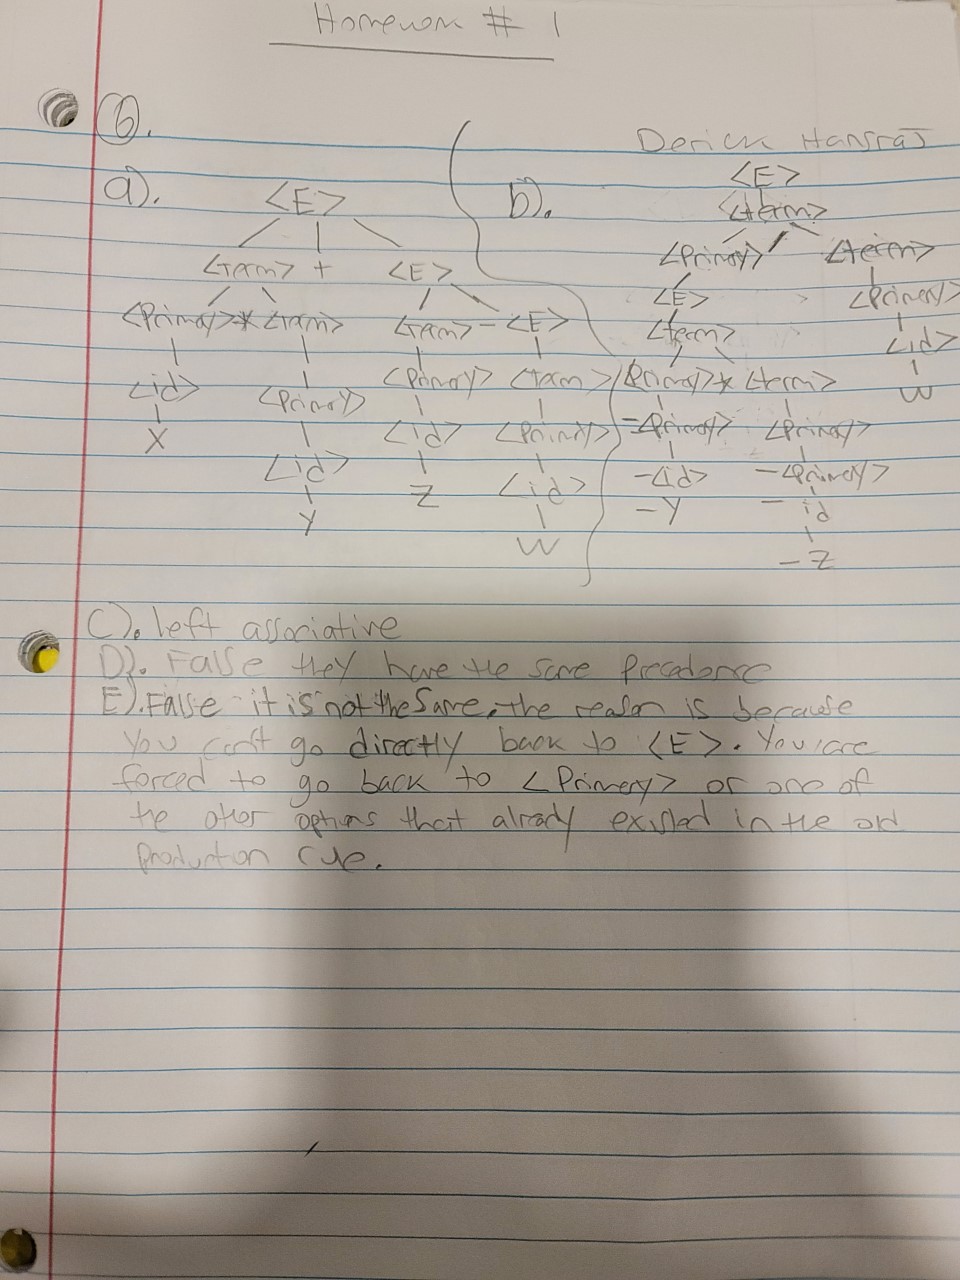 Homework # 1
6).
Derick Hansraj
a).
<E>
<term> + <E>
<Primary> * <term> <term> - <E>
<id> <Primary> <Primary> <term>
X <id> <id> <Primary>
Y Z <id>
W
b).
<E>
<term>
<Primary> / <term>
<E> <Primary>
<term> <id>
<Primary> * <term> W
-<Primary> <Primary>
-<id> -<Primary>
-Y - id
- Z
C). left associative
D). False they have the same precedence
E). False - it is not the Same, the reason is because
you can't go directly back to <E>. You are
forced to go back to <Primery> or one of
the other options that already existed in the old
production